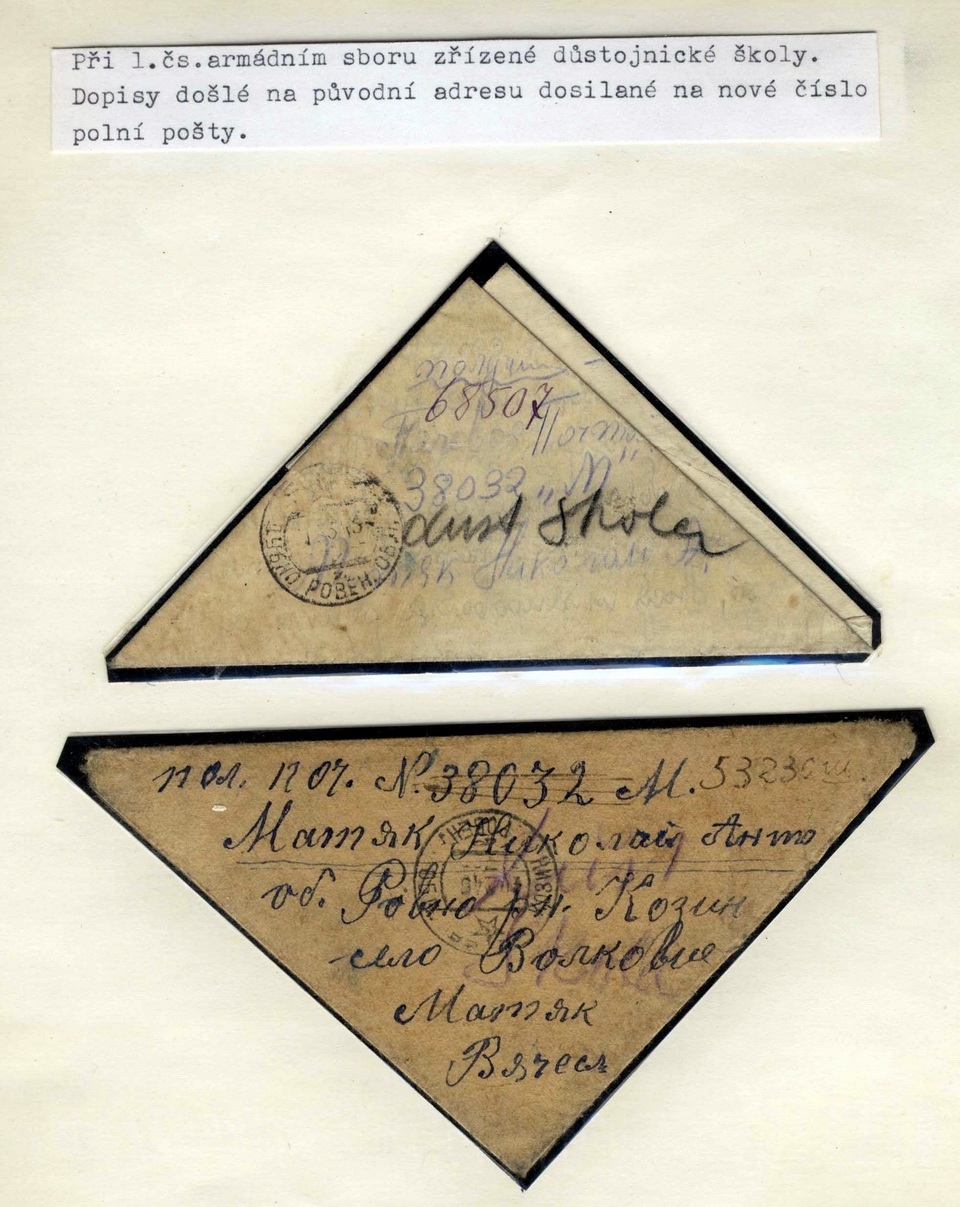 Při 1.čs.armádním sboru zřízené důstojnické školy.
Dopisy došlé na původní adresu dosilané na nové číslo
polní pošty.
68507
38032 „М"
důst škola
РОВЕН. ОБЛ.
пол. поч. №. 38032 М. 53230
Матяк Николай Анто
об. Ровно рн. Козин
село Волковые
Матяк
Вячесл